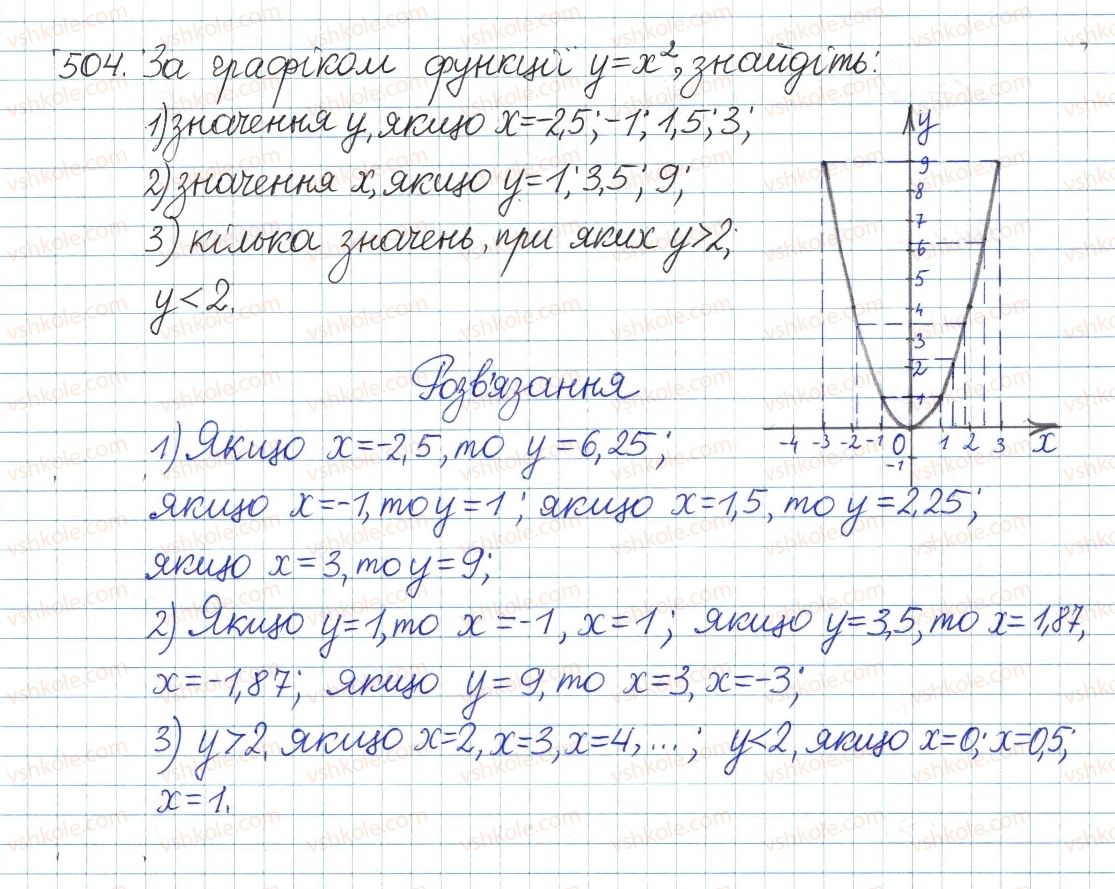 504. За графіком функції y=x², знайдіть:
1) значення y, якщо x=-2,5; -1; 1,5; 3;
2) значення x, якщо y=1; 3,5; 9;
3) кілька значень, при яких y>2;
y<2.
Розв'язання
1) Якщо x=-2,5, то y=6,25;
якщо x=-1, то y=1; якщо x=1,5, то y=2,25;
якщо x=3, то y=9;
2) Якщо y=1, то x=-1, x=1; якщо y=3,5, то x=1,87,
x=-1,87; якщо y=9, то x=3, x=-3;
3) y>2, якщо x=2, x=3, x=4, ...; y<2, якщо x=0; x=0,5;
x=1.
y
9
8
7
6
5
4
3
2
1
-4 -3 -2 -1 0 1 2 3 x
-1
vshkole.com